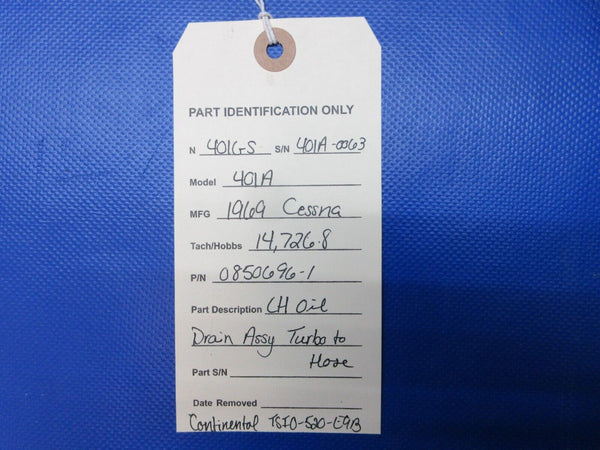 PART IDENTIFICATION ONLY
N 401GS S/N 401A-0063
Model 401A
MFG 1969 Cessna
Tach/Hobbs 14,726.8
P/N 0850696-1
Part Description LH Oil
Drain Assy Turbo to
Hose
Part S/N
Date Removed
Continental TSIO-520-E9B